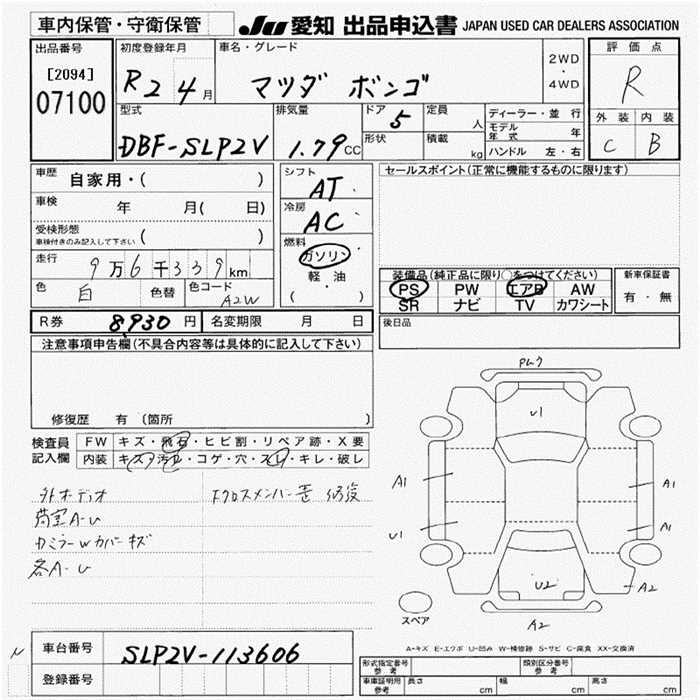 車内保管・守衛保管
JU 愛知 出品申込書 JAPAN USED CAR DEALERS ASSOCIATION
出品番号
[2094]
07100
初度登録年月
R2 4月
車名・グレード
マツダ ボンゴ
2WD
・
4WD
評価点
R
外装 内装
C B
型式
DBF-SLP2V
排気量
1.79cc
ドア
5
形状
定員
人
積載
kg
ディーラー・並行
モデル年式 年
ハンドル 左・右
車歴
自家用・( )
車検
年 月( 日)
受検形態
車検付きのみ記入して下さい ( )
走行
9万6千339km
色
白
色替
色コード
A2W
シフト
AT
冷房
AC
燃料
ガソリン
・
軽・油
( )
セールスポイント(正常に機能するものに限ります)
装備品(純正品に限り○をつけてください)
PS PW エアB AW
SR ナビ TV カワシート
新車保証書
有・無
後日品
R券 8,930円
名変期限 月 日
注意事項申告欄(不具合内容等は具体的に記入して下さい)
修復歴 有 (箇所 )
検査員記入欄
FW キズ・飛石・ヒビ割・リペア跡・X要
内装 キズ・汚れ・コゲ・穴・スレ・キレ・破レ
外オーディオ
荷室A-U
カミラーWカバーキズ
各A-U
FクロスメンバーW 修復
U1
A1
A1
U1
A1
U2
A2
A2
スペア
A-キズ E-エクボ U-凹み W-補修跡 S-サビ C-腐食 XX-交換済
車台番号
SLP2V-113606
登録番号
形式指定番号
参考
類別区分番号
参考
車庫証明用
参考
長さ cm 幅 cm 高さ cm